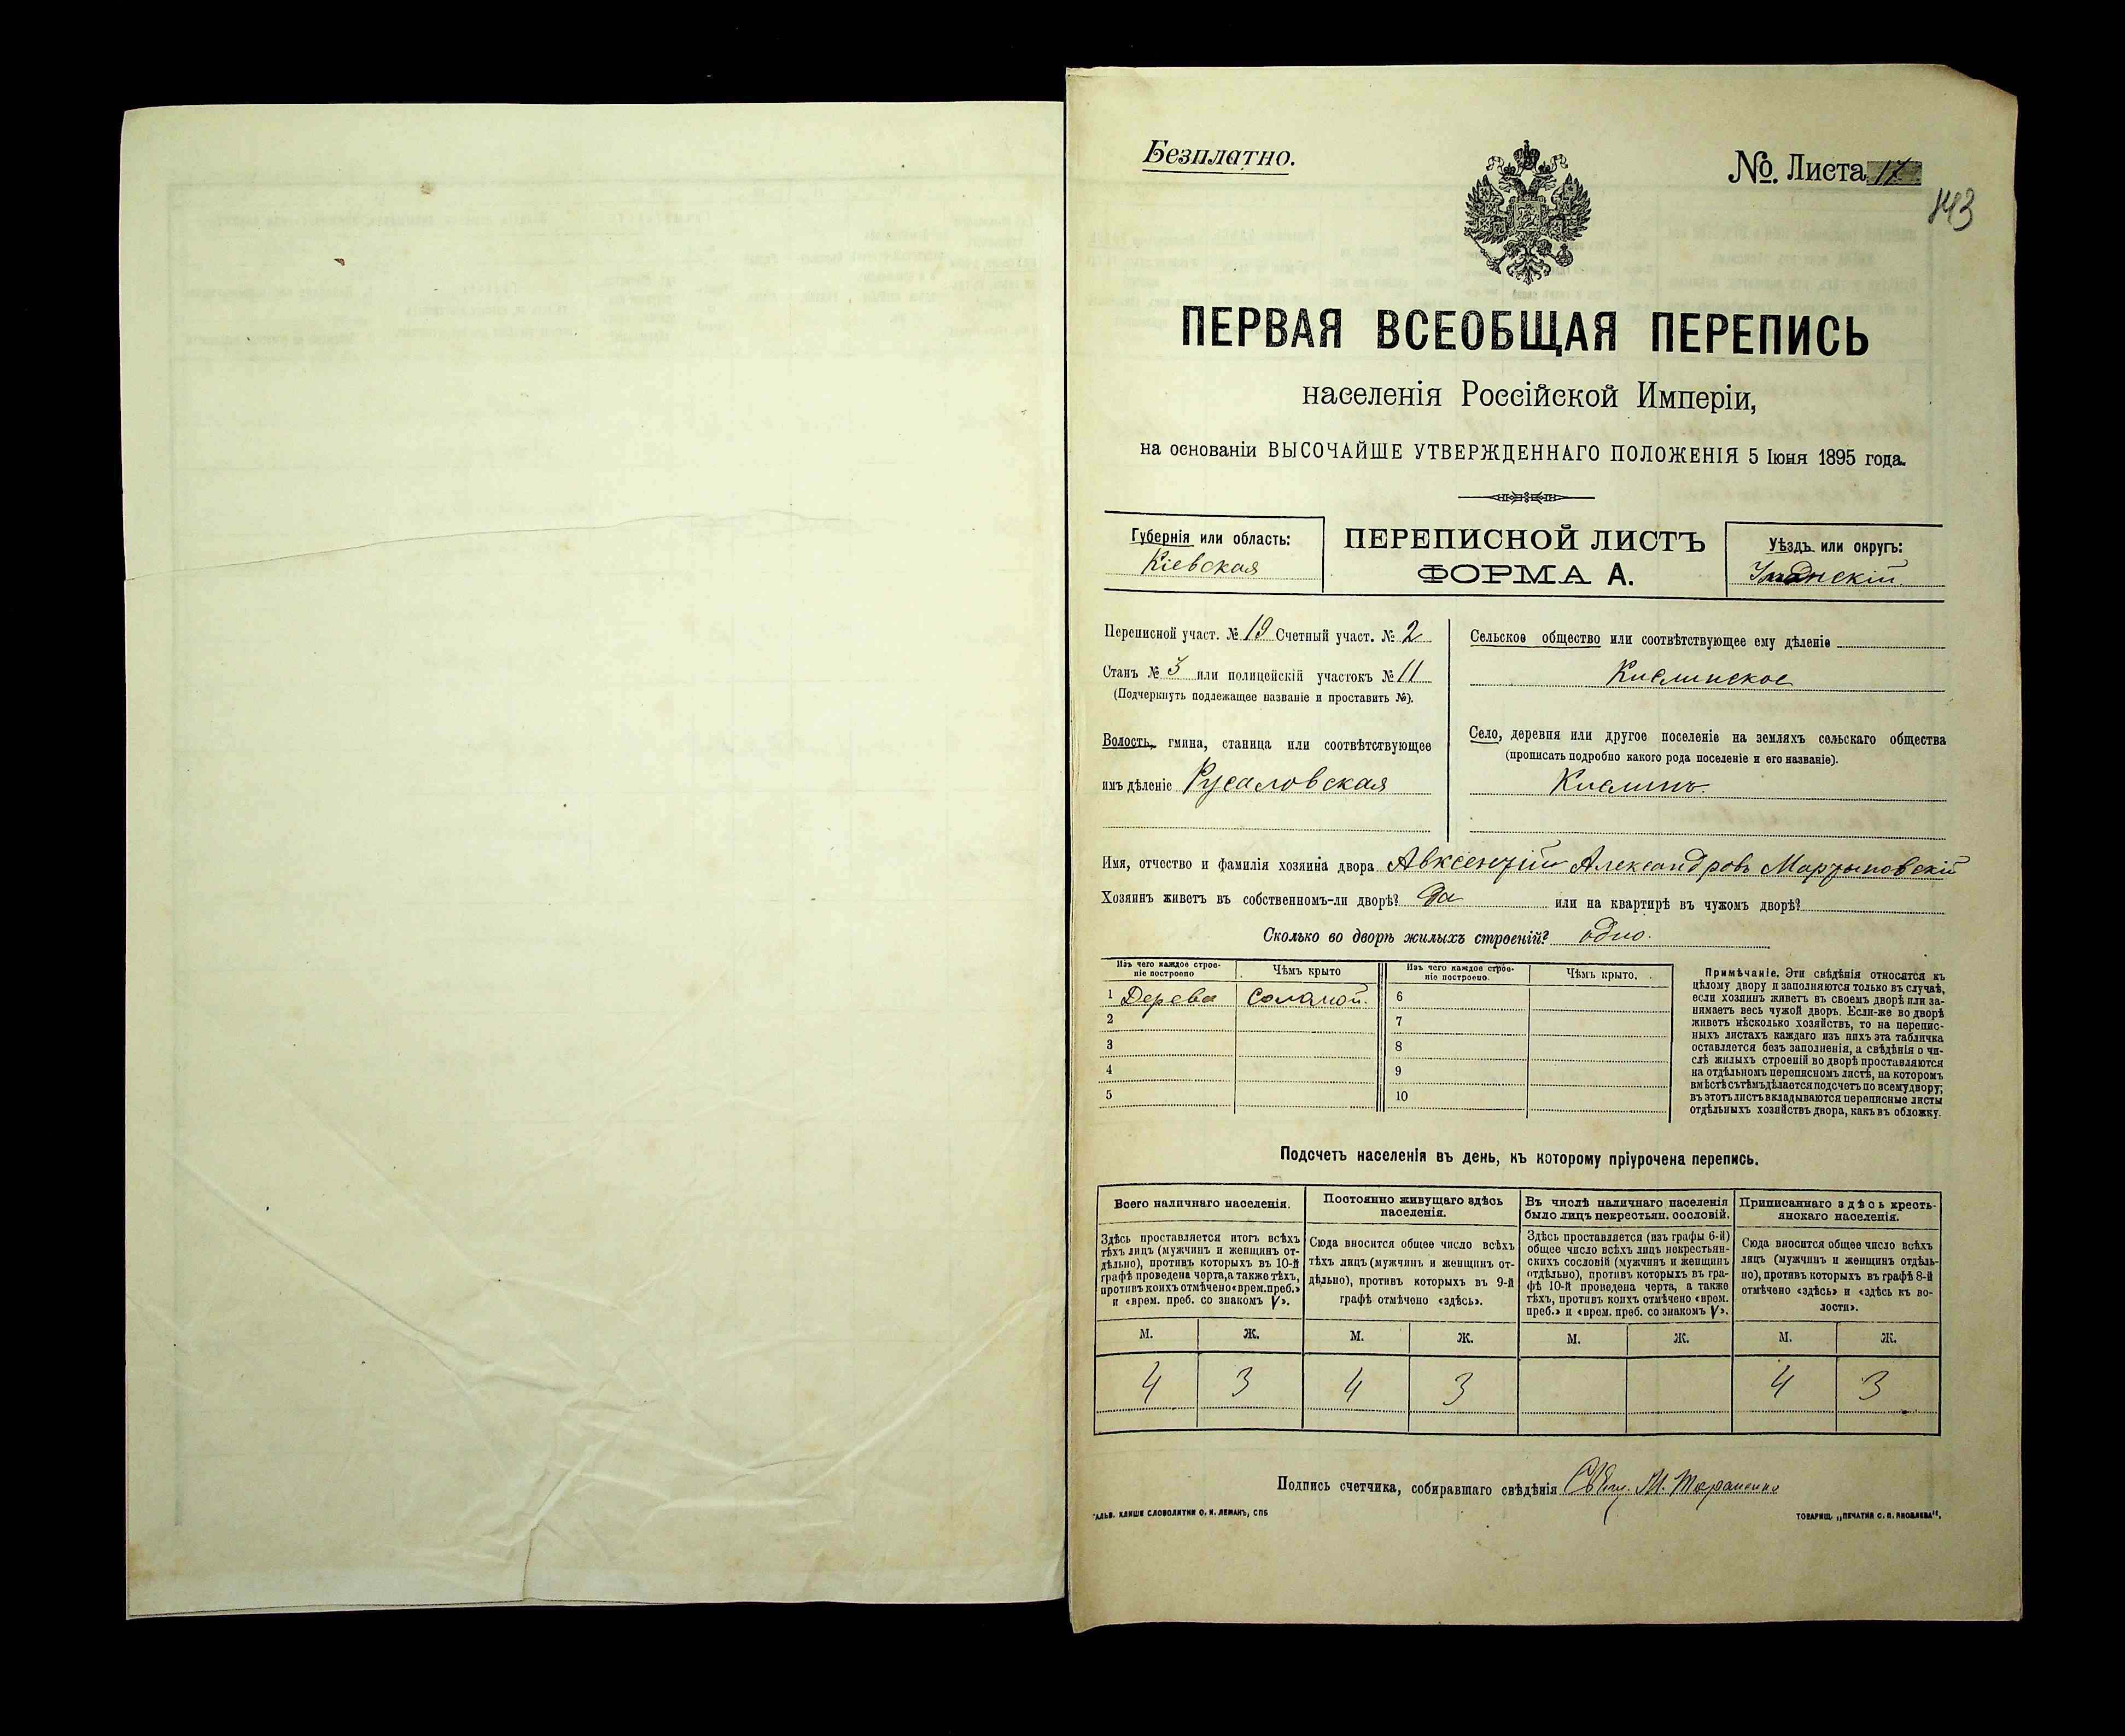 Безплатно.
№. Листа 17
143
ПЕРВАЯ ВСЕОБЩАЯ ПЕРЕПИСЬ
населенія Россійской Имперіи,
на основаніи ВЫСОЧАЙШЕ УТВЕРЖДЕННАГО ПОЛОЖЕНІЯ 5 Іюня 1895 года.
Губернія или область:
Кіевская
ПЕРЕПИСНОЙ ЛИСТЪ
ФОРМА А.
Уѣздъ или округъ:
Уманскій
Переписной участ. № 19 Счетный участ. № 2
Станъ № 3 или полицейскій участокъ № 11
(Подчеркнуть подлежащее названіе и проставить №).
Волость, гмина, станица или соотвѣтствующее
имъ дѣленіе Русаловская
Сельское общество или соотвѣтствующее ему дѣленіе
Кислинское
Село, деревня или другое поселеніе на земляхъ сельскаго общества
(прописать подробно какого рода поселеніе и его названіе).
Кислинъ.
Имя, отчество и фамилія хозяина двора Авксентій Александровъ Мартыновскій
Хозяинъ живетъ въ собственномъ-ли дворѣ? Да или на квартирѣ въ чужомъ дворѣ?
Сколько во дворѣ жилыхъ строеній? одно.
Изъ чего каждое строе-
ніе построено
Чѣмъ крыто
Изъ чего каждое строе-
ніе построено.
Чѣмъ крыто.
1 Дерева Соломой. 6
2 7
3 8
4 9
5 10
Примѣчаніе. Эти свѣдѣнія относятся къ
цѣлому двору и заполняются только въ случаѣ,
если хозяинъ живетъ въ своемъ дворѣ или за-
нимаетъ весь чужой дворъ. Если-же во дворѣ
живетъ нѣсколько хозяйствъ, то на перепис-
ныхъ листахъ каждаго изъ нихъ эта табличка
оставляется безъ заполненія, а свѣдѣнія о чи-
слѣ жилыхъ строеній во дворѣ проставляются
на отдѣльномъ переписномъ листѣ, на которомъ
вмѣстѣ съ тѣмъ дѣлается подсчетъ по всему двору;
въ этотъ листъ вкладываются переписные листы
отдѣльныхъ хозяйствъ двора, какъ въ обложку.
Подсчетъ населенія въ день, къ которому пріурочена перепись.
Всего наличнаго населенія.
Здѣсь проставляется итогъ всѣхъ
тѣхъ лицъ (мужчинъ и женщинъ от-
дѣльно), противъ которыхъ въ 10-й
графѣ проведена черта, а также тѣхъ,
противъ коихъ отмѣчено «врем. преб.»
и «врем. преб. со знакомъ V».
Постоянно живущаго здѣсь
населенія.
Сюда вносится общее число всѣхъ
тѣхъ лицъ (мужчинъ и женщинъ от-
дѣльно), противъ которыхъ въ 9-й
графѣ отмѣчено «здѣсь».
Въ числѣ наличнаго населенія
было лицъ некрестьян. сословій.
Здѣсь проставляется (изъ графы 6-й)
общее число всѣхъ лицъ некрестьян-
скихъ сословій (мужчинъ и женщинъ
отдѣльно), противъ которыхъ въ гра-
фѣ 10-й проведена черта, а также
тѣхъ, противъ коихъ отмѣчено «врем.
преб.» и «врем. преб. со знакомъ V».
Приписаннаго здѣсь кресть-
янскаго населенія.
Сюда вносится общее число всѣхъ
лицъ (мужчинъ и женщинъ отдѣль-
но), противъ которыхъ въ графѣ 8-й
отмѣчено «здѣсь» и «здѣсь къ во-
лости».
М. Ж. М. Ж. М. Ж. М. Ж.
4 3 4 3 4 3
Подпись счетчика, собиравшаго свѣдѣнія М. Тараненко
АЛЬВ. КЛИШЕ СЛОВОЛИТНИ О. И. ЛЕМАНЪ, СПБ
ТОВАРИЩ. „ПЕЧАТНЯ С. П. ЯКОВЛЕВА".